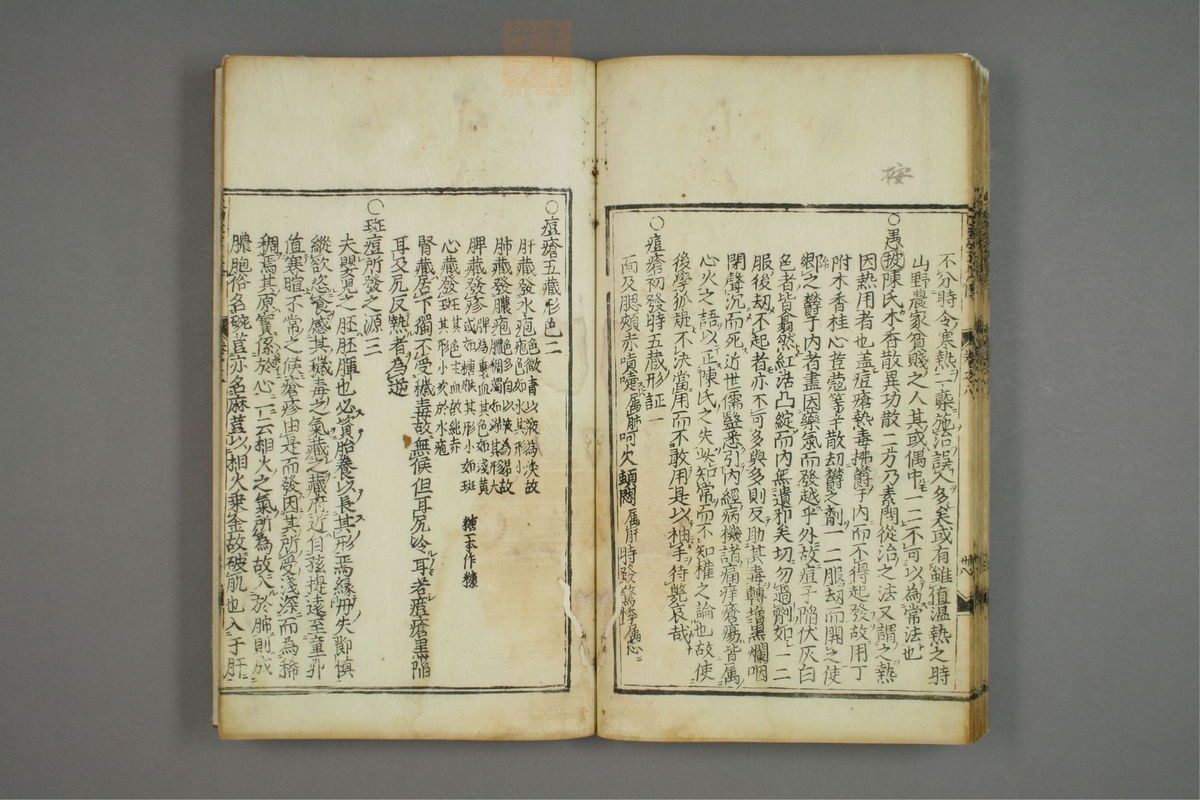 不分時令寒熱一槩施治誤人多矣或有雖值温熱之時
山野農家貧賤之人其或偶中一二不可以為常法也
○愚按陳氏木香散異功散二方乃素問從治之法又謂之熱
因熱用者也盖痘瘡熱毒拂欝于内而不得起發故用丁
附木香桂心荳蔲等辛散刼欝之劑一二服刼而開之使
欝于内者盡因藥氣而發越乎外故痘子陥伏灰白
色者皆翕然紅活凸綻而内無遺邪矣切勿過劑如一二
服後刼不起者亦不可多與多則反助其毒轉増黒爛咽
閉聲沉而死近世儒醫悉引内經病機諸痛痒瘡瘍皆属
心火之語以正陳氏之失此知常而不知權之論也故使
後學狐疑不決當用而不敢用是以袖手待斃哀哉
○痘瘡初發時五藏形証一
面及腮頰赤噴嚏属肺呵欠頓悶属肝時發驚悸属心
按
○痘瘡五藏形色二
肝藏發水疱色微青以液為淚故疱色如水其形小
肺藏發膿疱色多自以液為涕故膿稠濁如涕其形大
脾藏發疹脾為裏血其色如淺黄或如糠粃其形小如斑
心藏發斑其色主血故純赤其形小次於水疱
糠一本作糠
腎藏居下獨不受穢毒故無侯但耳尻冷耳若瘡瘡黒陥
耳及尻反熱者為逆
○斑痘所發之源三
夫嬰児之胚胚腪也必資胎養以長其形焉緣毋失節慎
縱欲恣食感其穢毒之氣藏之藏府近自孩提遠至童丱
值寒暄不常之候瘡疹由是而發因其所受淺深而為稀
稠焉其原實係於心一云相火之氣所為故入於肺則成
膿胞俗名豌荳亦名麻荳以相火乗金故破肌也入于肝